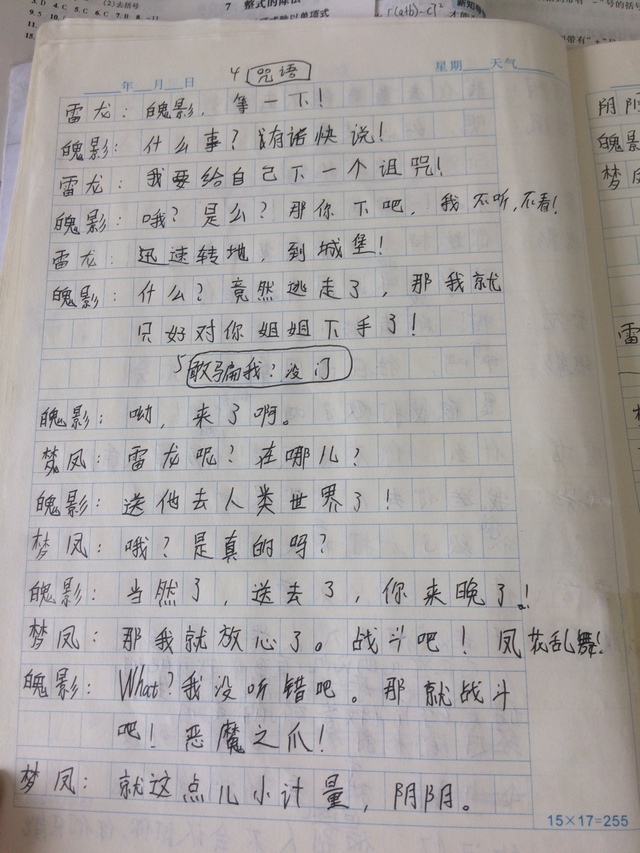 3. D 4. C 5. C 6. C 7. C 8.
7 整式的除法
年 月 日 4 咒语 星期 天气
雷龙：魄影，等一下！
魄影：什么事？有话快说！
雷龙：我要给自己下一个诅咒！
魄影：哦？是么？那你下吧，我不听，不看！
雷龙：迅速转地，到城堡！
魄影：什么？竟然逃走了，那我就
只好对你姐姐下手了！
5 敢骗我？没门
魄影：呦，来了啊。
梦凤：雷龙呢？在哪儿？
魄影：送他去人类世界了！
梦凤：哦？是真的吗？
魄影：当然了，送去了，你来晚了！
梦凤：那我就放心了。战斗吧！凤花乱舞！
魄影：What？我没听错吧。那就战斗
吧！恶魔之爪！
梦凤：就这点儿小计量，阴阴。
15×17=255
阴阴
魄影
梦
雷